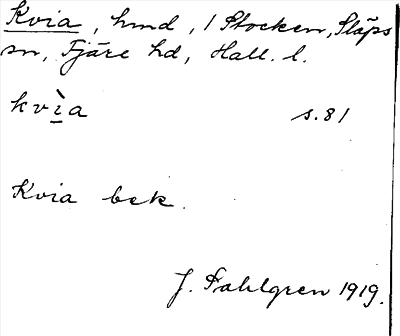 Kvia, hmd, / Stocken, Släps
sn, Fjäre hd, Hall. l.
kvìa s.81
Kvia bek.
J. Sahlgren 1919.